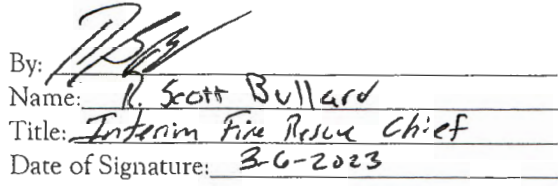 By:
Name: R. Scott Bullard
Title: Interim Fire Rescue Chief
Date of Signature: 3-6-2023